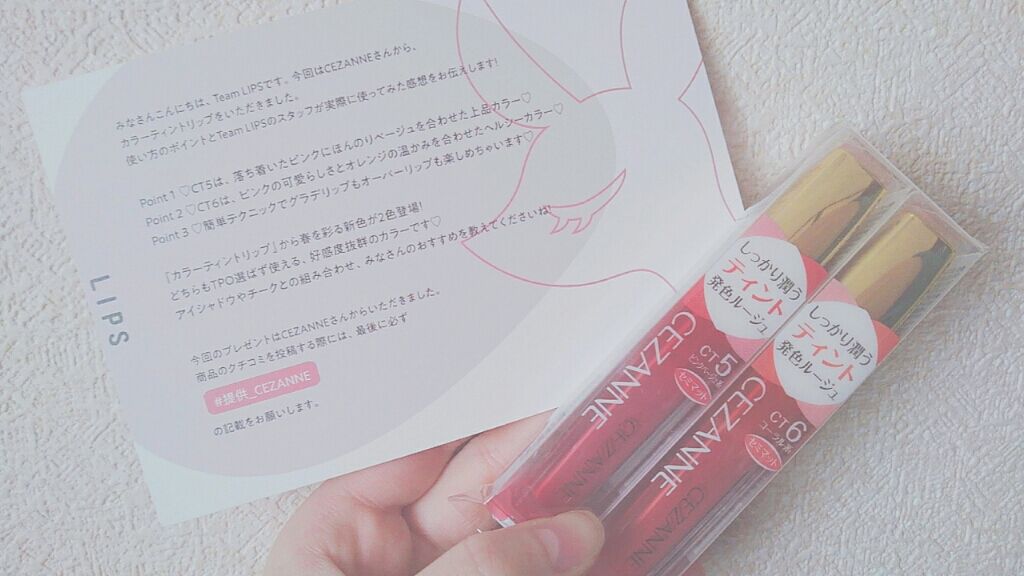 みなさんこんにちは、Team LIPSです。今回はCEZANNEさんから、
カラーティントリップをいただきました。
使い方のポイントとTeam LIPSのスタッフが実際に使ってみた感想をお伝えします!
Point 1 ♡CT5は、落ち着いたピンクにほんのりベージュを合わせた上品カラー♡
Point 2 ♡CT6は、ピンクの可愛らしさとオレンジの温かみを合わせたヘルシーカラー♡
Point 3 ♡簡単テクニックでグラデリップもオーバーリップも楽しめちゃいます♡
『カラーティントリップ』から春を彩る新色が2色登場!
どちらもTPO選ばず使える、好感度抜群のカラーです♡
アイシャドウやチークとの組み合わせ、みなさんのおすすめを教えてくださいね!
今回のプレゼントはCEZANNEさんからいただきました。
商品のクチコミを投稿する際には、最後に必ず
#提供_CEZANNE
の記載をお願いします。
LIPS
しっかり潤う
ティント
発色ルージュ
CT5
ピンクベージュ系
セミマット
CEZANNE
CEZANNE
しっかり潤う
ティント
発色ルージュ
CT6
コーラル系
セミマット
CEZANNE
CEZANNE